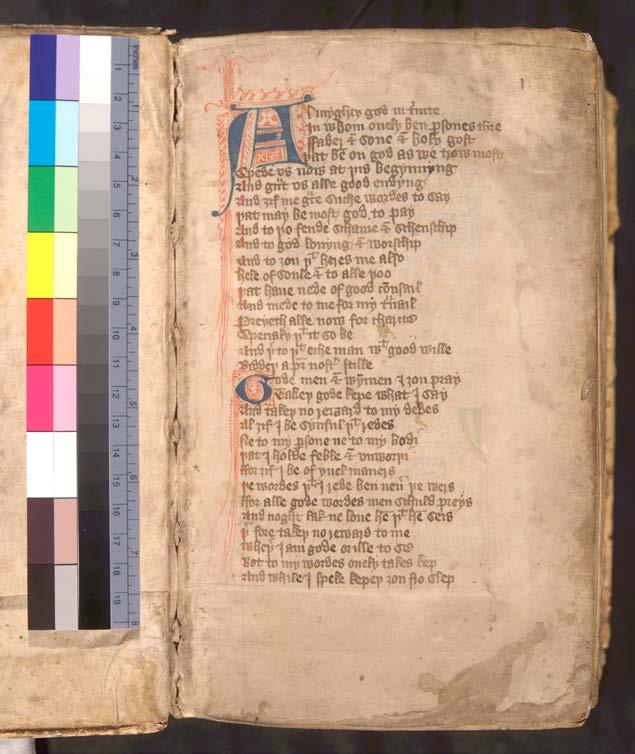 Almyghty god in t'nite
In whom onely ben p'sones thre
ffader & Sone & holy gost
þat ben on god as we trow most
Spede vs now at þis begynnyng
And g'nt vs alle good endyng
And zif me g'ce Suche wordes to Say
þat may be most god to pay
And to þo fende Schame & Schenschip
And to god louyng & worschip
And to zou þt heres me also
hele of Soule & to alle þoo
þat haue nede of good consail
And mede to me for my t'uail
Preyeth alle now for charite
Specialy þt it So be
And þ'to þt eche man wt good wille
Biddeþ a p'r nost' stille
Gode men & wymen I zou pray
Takeþ gode kepe what I Say
And takeþ no reward to my dedes
Al zif I be Synful þt redes
Ne to my p'sone ne to my bodi
þat I holde feble & vnworþi
ffor zif I be of yuel maners
þe wordes þt I rede ben neu' þe wers
ffor alle gode wordes men Schuld preys
And noght for his loue he þt he Seis
þ'fore takeþ no reward to me
wheþ' I am gode or ille to Se
Bot to my wordes onely takes kep
And while I speke kepeþ zou fro Slep
Inches
1
2
3
4
5
6
7
8
1
2
3
4
5
6
7
8
9
10
11
12
13
14
15
16
17
18
19